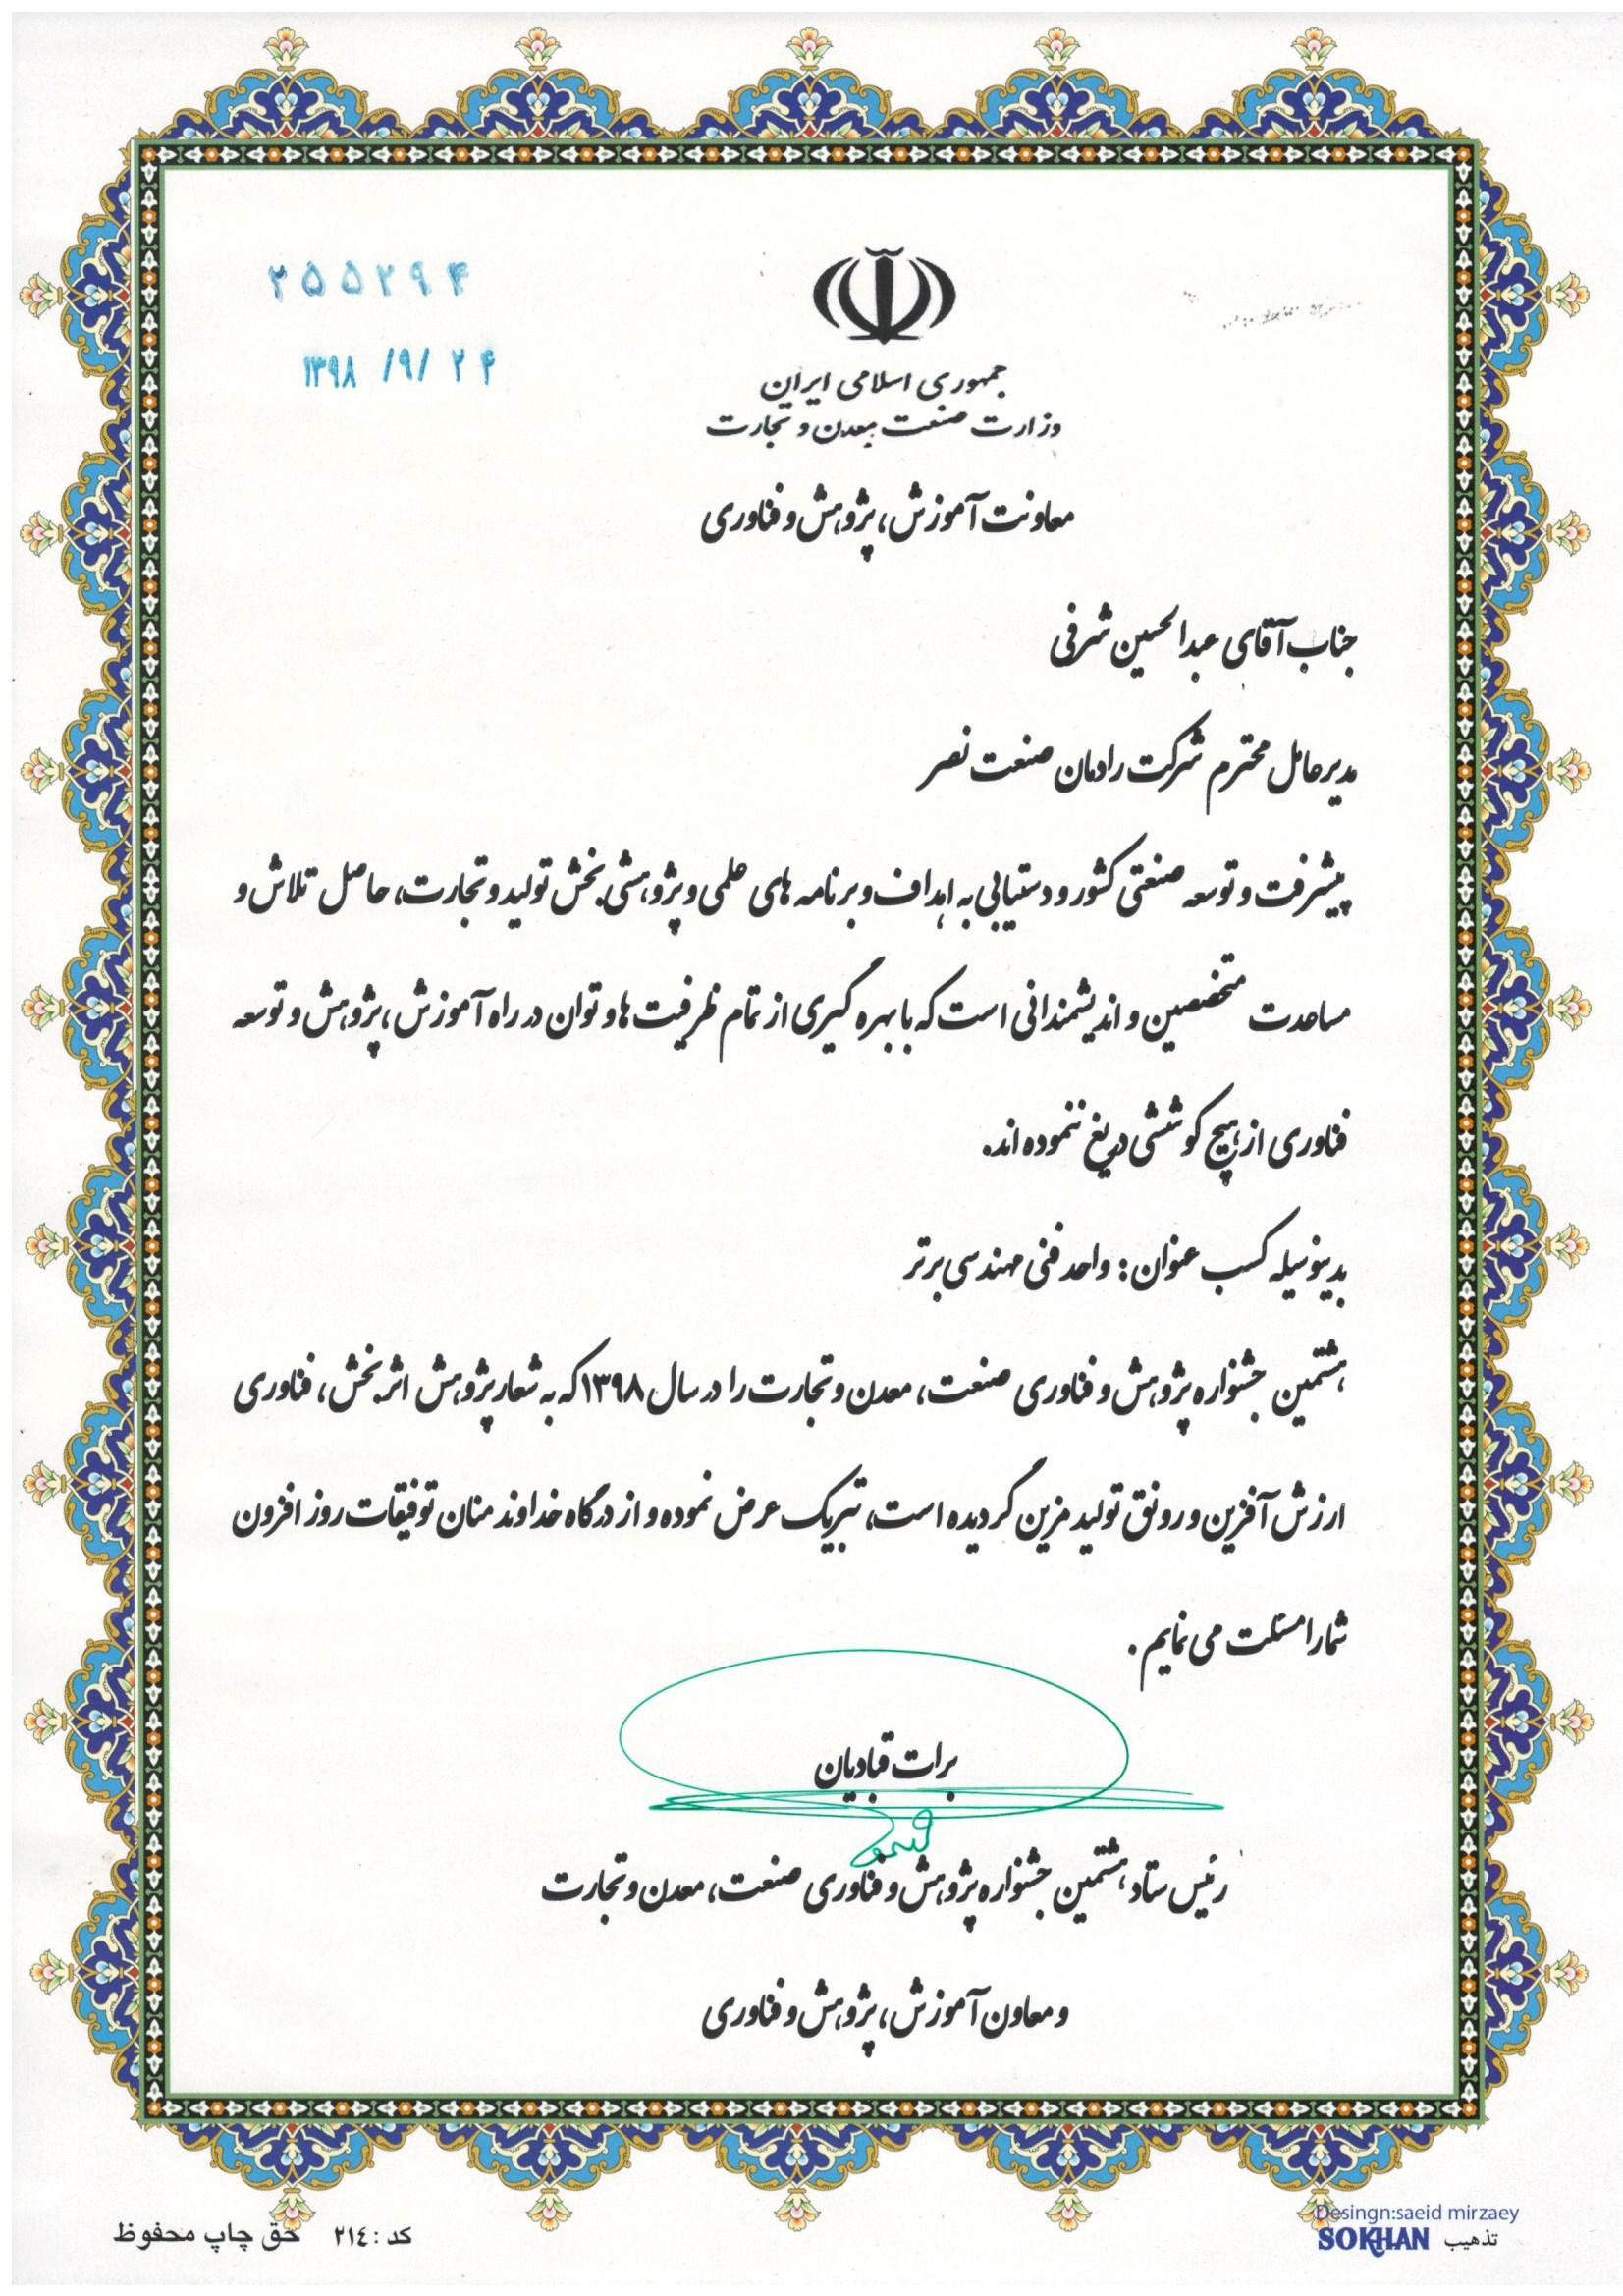 ۲۵۵۲۹۴
۱۳۹۸ /۹/ ۲۴
جمهوری اسلامی ایران
وزارت صنعت معدن و تجارت
معاونت آموزش، پژوهش و فناوری
جناب آقای عبدالحسین شرفی
مدیرعامل محترم شرکت رادمان صنعت نصر
پیشرفت و توسعه صنعتی کشور و دستیابی به اهداف و برنامه های علمی و پژوهشی بخش تولید و تجارت، حاصل تلاش و
مساعدت متخصصین و اندیشمندانی است که با بهره گیری از تمام ظرفیت ها و توان در راه آموزش، پژوهش و توسعه
فناوری از هیچ کوششی دریغ ننموده اند.
بدینوسیله کسب عنوان: واحد فنی مهندسی برتر
هشتمین جشنواره پژوهش و فناوری صنعت، معدن و تجارت را در سال ۱۳۹۸ که به شعار پژوهش اثربخش، فناوری
ارزش آفرین و رونق تولید مزین گردیده است، تبریک عرض نموده و از درگاه خداوند منان توفیقات روز افزون
شما را مسئلت می نمایم.
برات قبادیان
رئیس ستاد هشتمین جشنواره پژوهش و فناوری صنعت، معدن و تجارت
و معاون آموزش، پژوهش و فناوری
Desingn:saeid mirzaey
تذهیب SOKHAN
کد : ۲۱٤ حق چاپ محفوظ